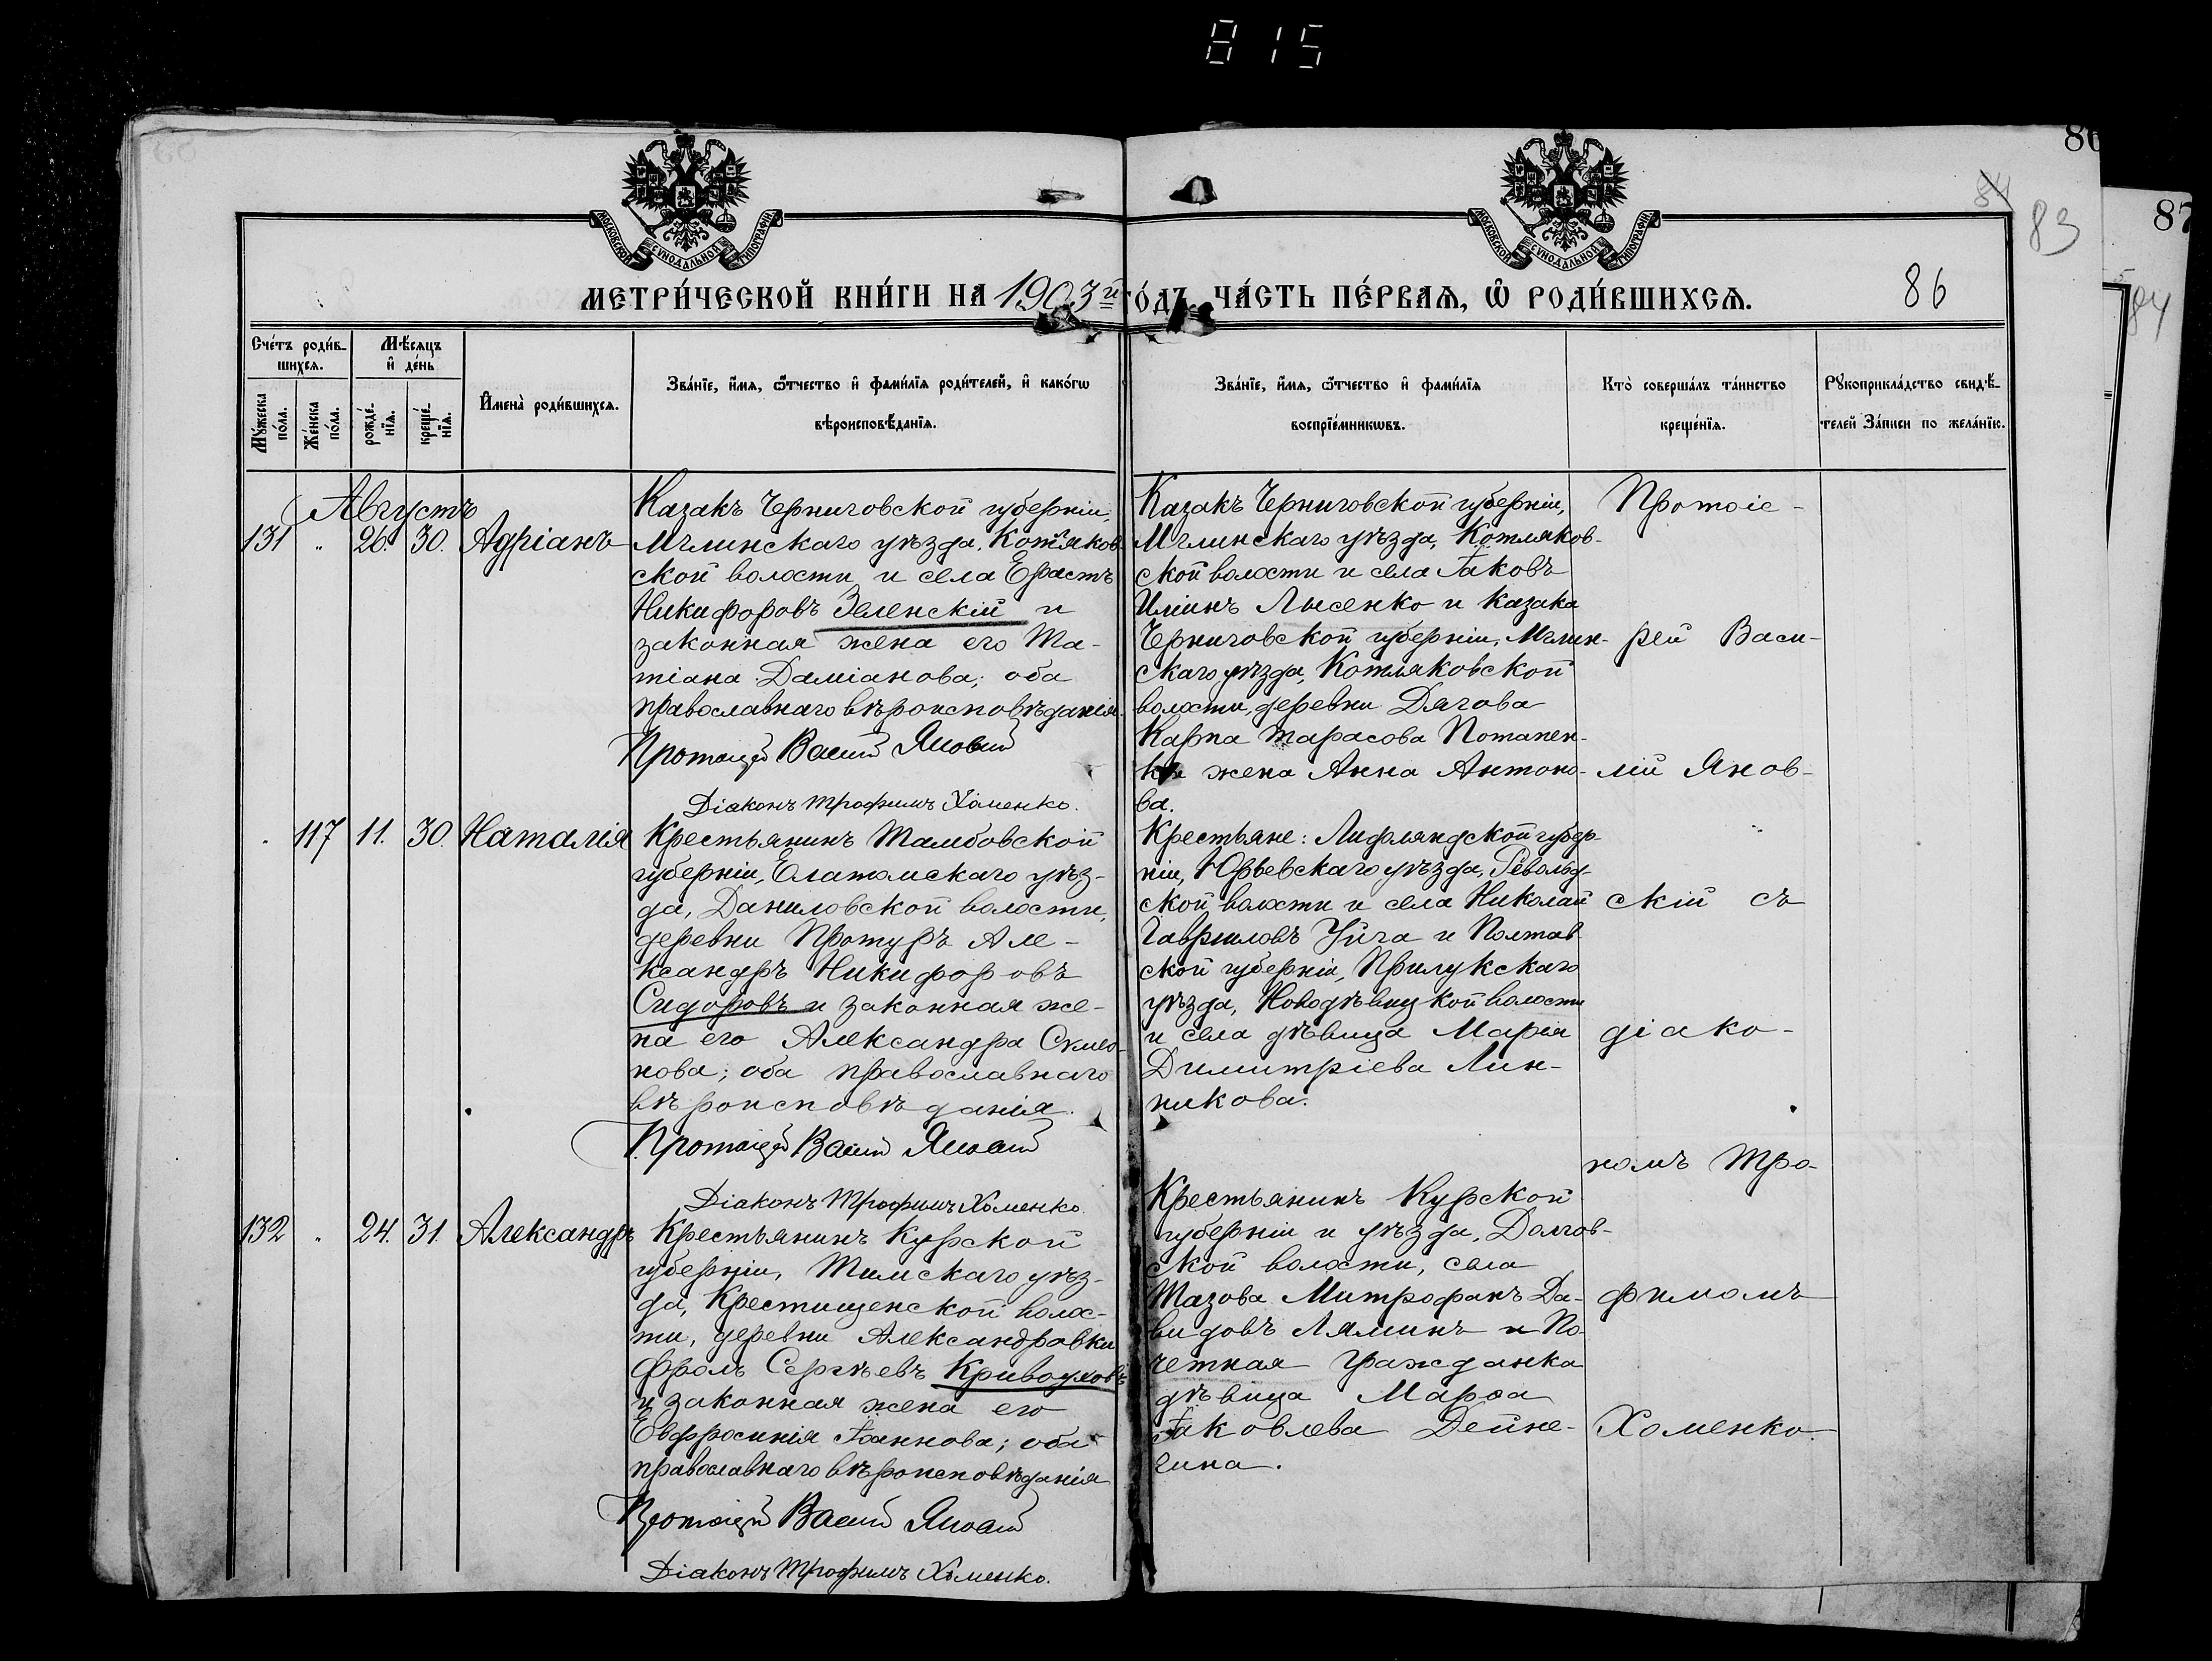 815
86
87
84
83
84
МОСКОВСКОЙ СѴНОДАЛЬНОЙ ТИПОГРАФІИ
МОСКОВСКОЙ СѴНОДАЛЬНОЙ ТИПОГРАФІИ
МЕТРИ́ЧЕСКОЙ КНИ́ГИ НА 1903й го́дъ, ЧА́СТЬ ПЕ́РВАЯ, Ѽ РОДИ́ВШИХСЯ.
86
Сче́тъ роди́в-
шихся.
Мѣ́сяцъ
и҆ де́нь
Му́жеска
по́ла.
Же́нска
по́ла.
рожде́-
нїя.
креще́-
нїя.
И҆мена̀ роди́вшихся.
Зва́нїе, и҆́мя, ѻ҆́тчество и҆ фами́лїя роди́телей, и҆ како́гѡ
вѣроисповѣ́данїя.
Зва́нїе, и҆́мя, ѻ҆́тчество и҆ фами́лїя
воспрїе́мникѡвъ.
Кто̀ соверша́лъ та́инство
креще́нїя.
Рꙋкоприкла́дство свидѣ́-
телей За́писи по жела́нїю.
Августъ
131 " 26. 30. Адріанъ
Казакъ Черниговской губерніи,
Мглинскаго уѣзда, Котляков-
ской волости и села Ерастъ
Никифоровъ Зеленскій и
законная жена его Та-
тіана Даміанова; оба
православнаго вѣроисповѣданія.
Протоіерей Василій Яновскій
Діаконъ Трофимъ Хоменко.
Казакъ Черниговской губерніи,
Мглинскаго уѣзда, Котляков-
ской волости и села Іаковъ
Иліинъ Лысенко и казака
Черниговской губерніи, Мглин-
скаго уѣзда, Котляковской
волости, деревни Дягова
Карпа Тарасова Потапен-
ка жена Анна Антоно-
ва.
" 117 11. 30. Наталія
Крестьянинъ Тамбовской
губерніи, Елатомскаго уѣз-
да, Даниловской волости,
деревни Протуръ Але-
ксандръ Никифоровъ
Сидоровъ и законная же-
на его Александра Сѵмео-
нова; оба православнаго
вѣроисповѣданія.
Протоіерей Василій Яновскій
Діаконъ Трофимъ Хоменко.
Крестьяне: Лифляндской губер-
ніи, Юрьевскаго уѣзда, Револьд-
ской волости и села Николай
Гавриловъ Уйга и Полтав
ской губерніи, Прилукскаго
уѣзда, Новодѣвицкой волости
и села дѣвица Марія
Димитріева Лин-
никова.
132 " 24. 31. Александръ
Крестьянинъ Курской
губерніи, Тимскаго уѣз-
да, Крестищенской волос-
ти, деревни Александровки
Фролъ Сергѣевъ Кривоуховъ
и законная жена его
Евфросинія Іоаннова; оба
православнаго вѣроисповѣданія
Протоіерей Василій Яновскій
Діаконъ Трофимъ Хоменко.
Крестьянинъ Курской
губерніи и уѣзда, Долгов-
ской волости, села
Тазова Митрофанъ Да-
видовъ Ляминъ и По-
четная гражданка
дѣвица Марѳа
Іаковлева Дейне-
гина.
Протоіе-
рей Васи-
лій Янов-
скій съ
діако-
номъ Тро-
фимомъ
Хоменко.